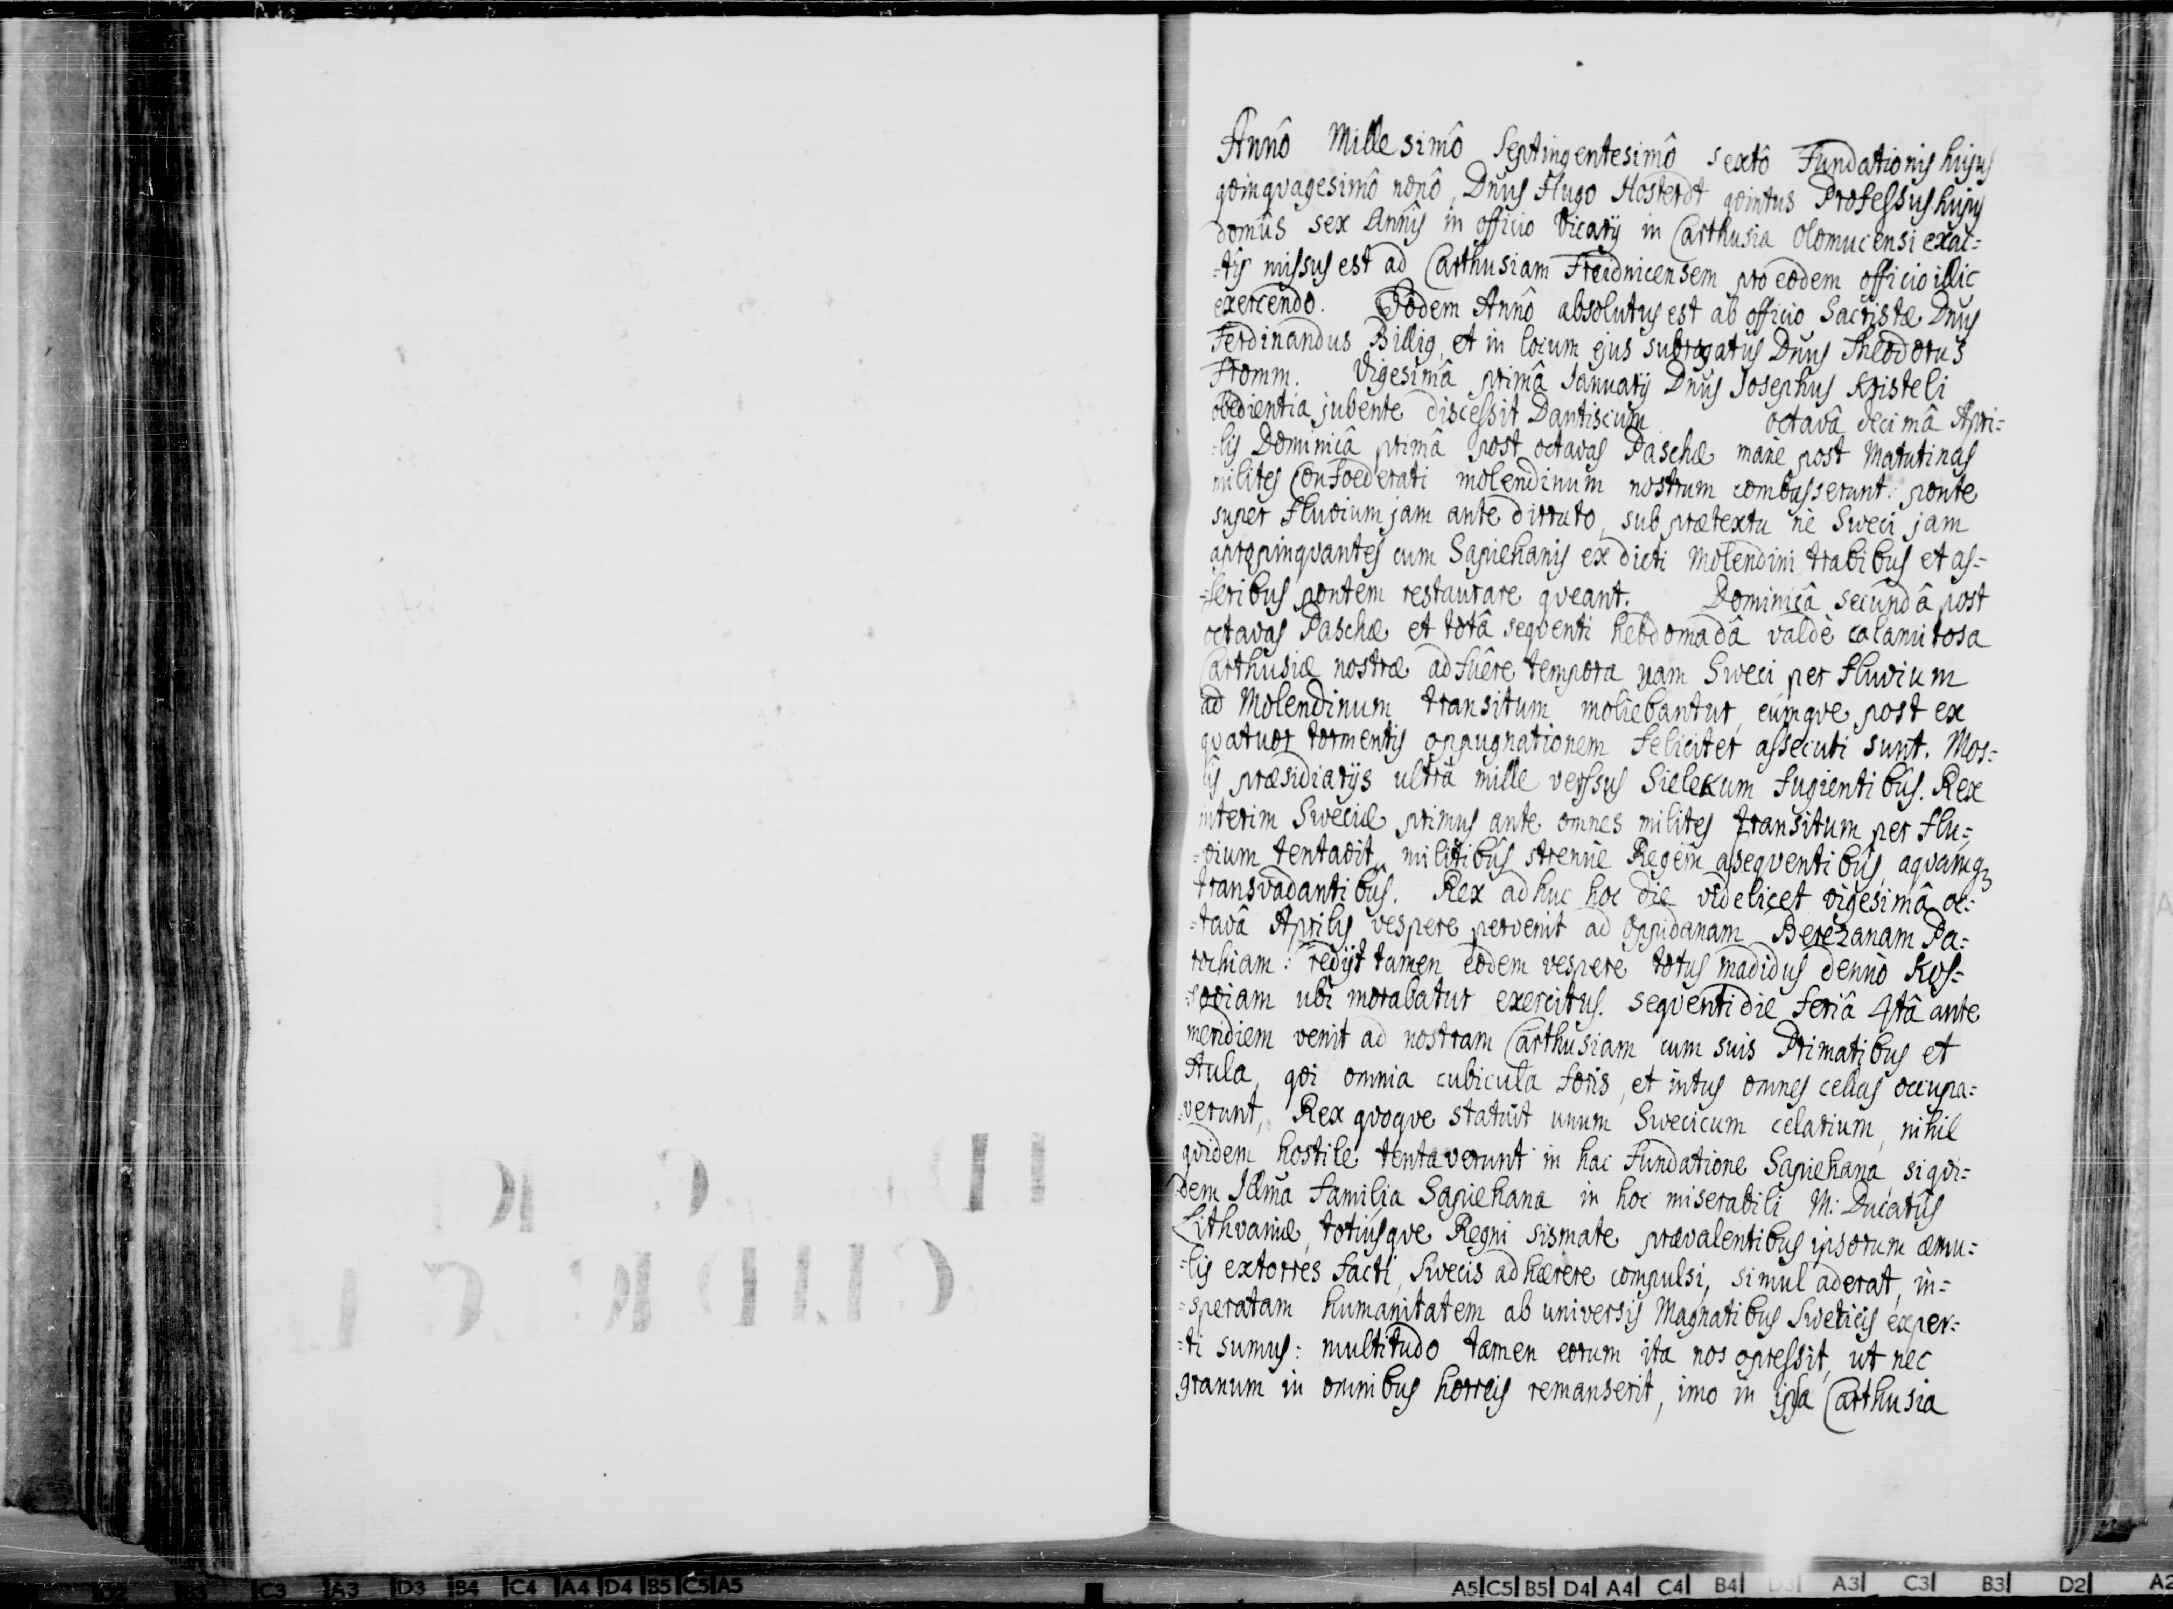 Annô Millesimô Septingentesimô sextô Fundationis hujus
qvinqvagesimô nonô, Dnus Hugo Hosterdt qvintus Professus hujus
domûs sex Annis in officio Vicarij in Carthusia Olomucensi exac=
=tis missus est ad Carthusiam Freidnicensem pro eodem officio illic
exercendo. Eodem Annô absolutus est ab officio Sacristæ Dnus
Ferdinandus Billig, et in locum ejus subrogatus Dnus Theodorus
Fromm. Vigesimâ primâ Januarij Dnus Josephus Kristeli
obedientia jubente discessit Dantiscum octavâ decimâ Apri=
=lis Dominicâ primâ post octavas Paschæ manè post Matutinas
milites Confoederati molendinum nostrum combusserunt: ponte
super Fluvium jam ante diruto, sub prætextu nè Sweci jam
apropinqvantes cum Sapiehanis ex dicti Molendini trabibus et as=
=seribus pontem restaurare qveant. Dominicâ secundâ post
octavas Paschæ et totâ seqventi hebdomadâ valdè calamitosa
Carthusiæ nostræ adfuêre tempora nam Sweci per Fluvium
ad Molendinum transitum moliebantur, eumqve post ex
qvatuor tormentis oppugnationem feliciter assecuti sunt. Mos=
lis præsidiarijs ultrà mille versus Sielekum fugientibus. Rex
interim Sweciæ primus ante omnes milites transitum per Flu=
=vium tentavit, militibus strenuè Regem asseqventibus, aqvamq3
transvadantibus. Rex adhuc hoc die videlicet vigesimâ oc=
=tavâ Aprilis vespere pervenit ad Oppidanam Berezanam Pa=
rochiam: redijt tamen eodem vespere totus madidus denuò Kos=
=soviam ubi morabatur exercitus. seqventi die feriâ 4tâ ante
meridiem venit ad nostram Carthusiam cum suis Primatibus et
Aula, qvi omnia cubicula foris, et intus omnes cellas occupa=
=verunt, Rex qvoqve statuit unum Swecicum celarium, nihil
qvidem hostile tentaverunt in hac Fundatione Sapiehana, siqvi=
dem Illma Familia Sapiehana in hoc miserabili M: Ducatûs
Lithvaniæ, totiusqve Regni sismate prævalentibus ipsorum æmu=
=lis extorres facti, Swecis adhærere compulsi, simul aderat, in=
=speratam humanitatem ab universis Magnatibus Sweticis exper=
=ti sumus: multitudo tamen eorum ita nos opressit, ut nec
granum in omnibus horreis remanserit, imo in ipsa Carthusia